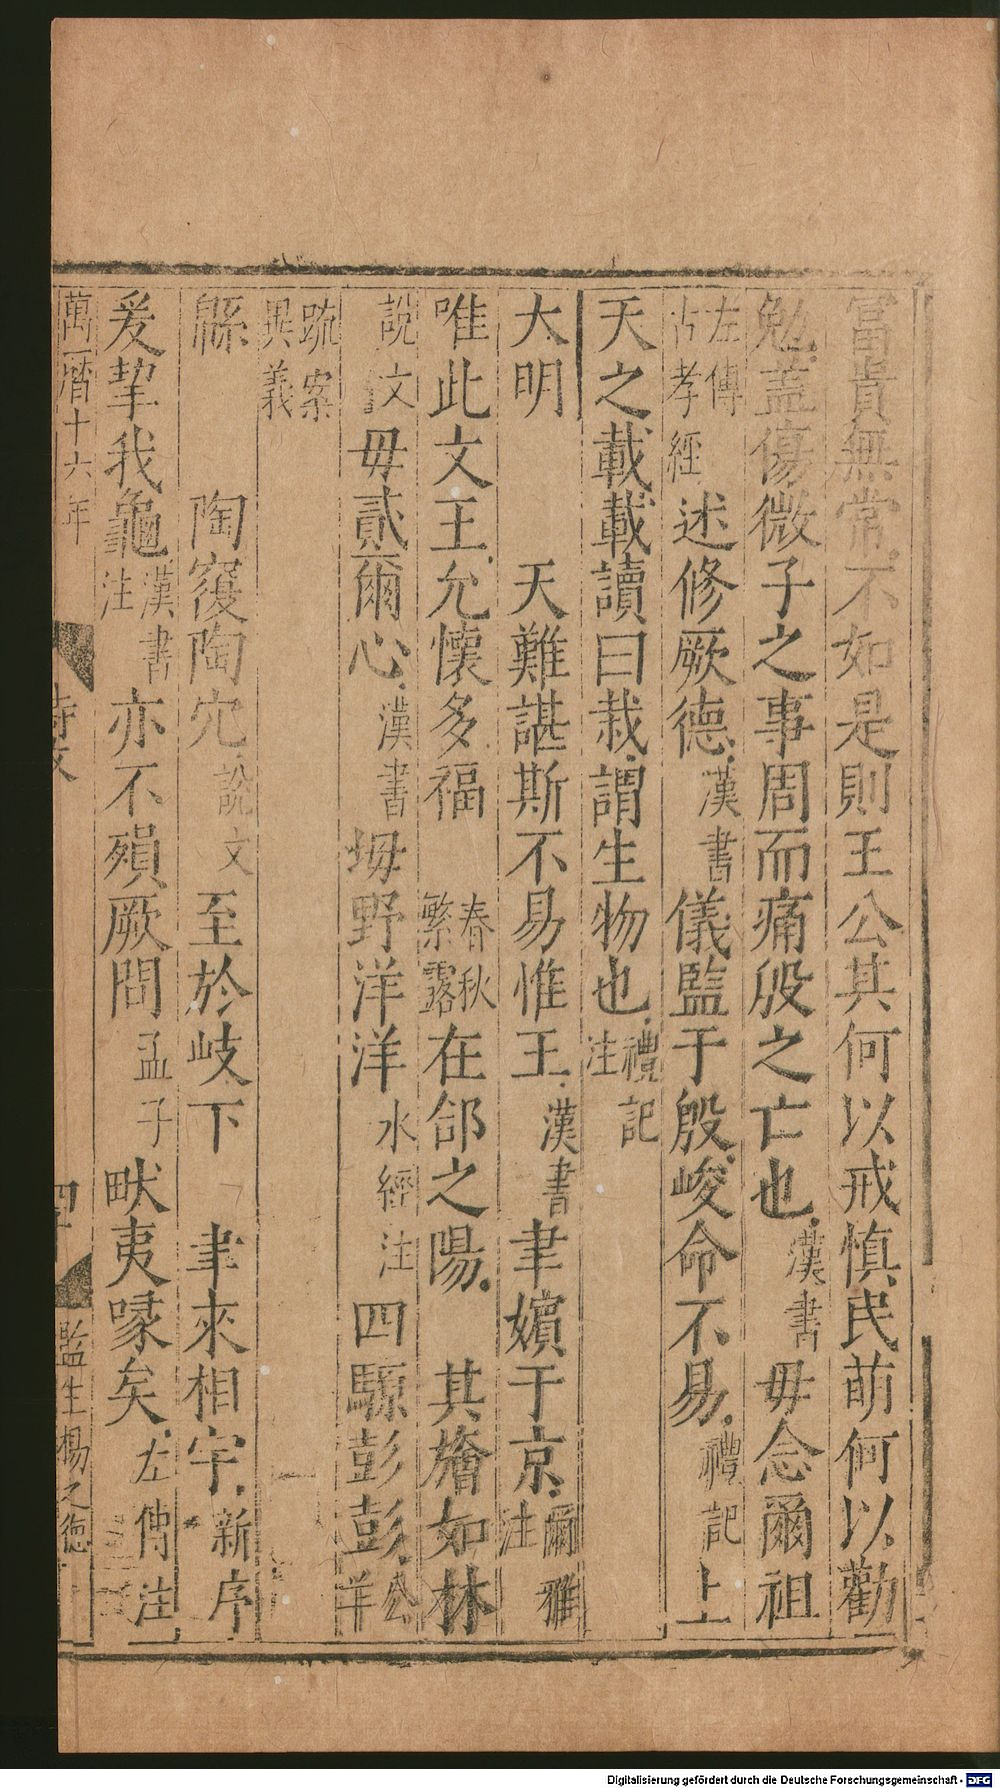 富貴無常不如是則王公其何以戒慎民萌何以勸
勉蓋傷微子之事周而痛殷之亡也漢書毋念爾祖
左傳古孝經述修厥德漢書儀監于殷峻命不易禮記上
天之載載讀曰栽謂生物也禮記注
大明 天難諶斯不易惟王漢書聿嬪于京爾雅注
唯此文王允懷多福春秋繁露在郃之陽 其旝如林
說文毋貳爾心漢書坶野洋洋水經注四騵彭彭公羊
疏案異義
緜 陶㝮陶穴說文至於岐下 聿來相宇新序
爰挈我龜漢書注亦不殞厥問孟子畎夷喙矣左傳注
萬曆十六年 詩攷 監生楊之德
Digitalisierung gefördert durch die Deutsche Forschungsgemeinschaft - DFG